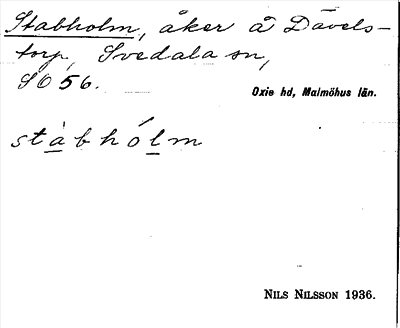 Stabholm, åker å Dävels-
torp, Svedala sn,
SO 56.
Oxie hd, Malmöhus län.
stàbhólm
NILS NILSSON 1936.